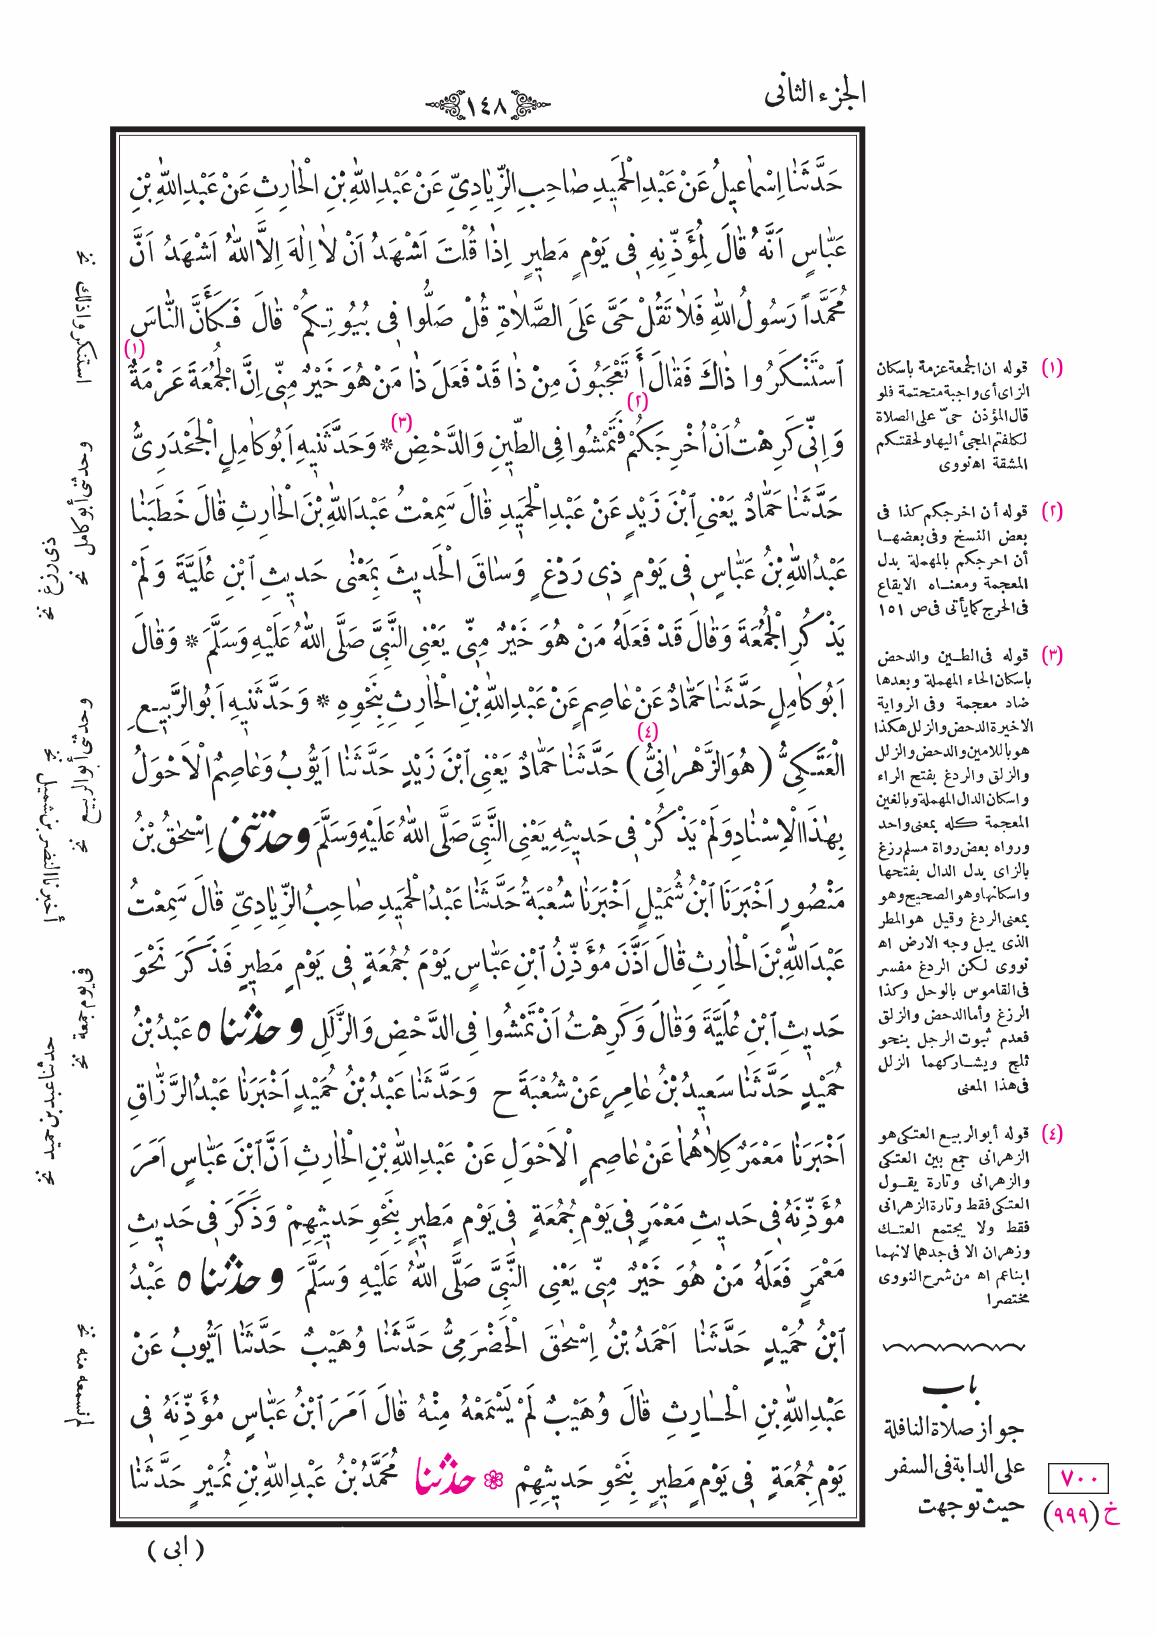 الجزء الثانى
١٤٨
حَدَّثَنَا اِسْمَاعِيلُ عَنْ عَبْدِ الْحَمِيدِ صَاحِبِ الزِّيَادِيِّ عَنْ عَبْدِ اللّٰهِ بْنِ الْحَارِثِ عَنْ عَبْدِ اللّٰهِ بْنِ
عَبَّاسٍ اَنَّهُ قَالَ لِمُؤَذِّنِهِ فِى يَوْمٍ مَطِيرٍ اِذَا قُلْتَ اَشْهَدُ اَنْ لَا اِلٰهَ اِلاَّ اللّٰهُ اَشْهَدُ اَنَّ
مُحَمَّداً رَسُولُ اللّٰهِ فَلَا تَقُلْ حَىَّ عَلَى الصَّلَاةِ قُلْ صَلُّوا فِى بُيُوتِكُمْ قَالَ فَكَأَنَّ النَّاسَ
اَسْتَنْكَرُوا ذٰاكَ فَقَالَ أَتَعْجَبُونَ مِنْ ذَا قَدْ فَعَلَ ذَا مَنْ هُوَ خَيْرٌ مِنِّى اِنَّ الْجُمُعَةَ عَزْمَةٌ (١)
وَاِنِّى كَرِهْتُ اَنْ اُخْرِجَكُمْ (٢) فَتَمْشُوا فِى الطِّينِ وَالدَّحْضِ (٣) * وَحَدَّثَنِيهِ اَبُو كَامِلٍ الْجَحْدَرِىُّ
حَدَّثَنَا حَمَّادٌ يَعْنِى ابْنَ زَيْدٍ عَنْ عَبْدِ الْحَمِيدِ قَالَ سَمِعْتُ عَبْدَ اللّٰهِ بْنَ الْحَارِثِ قَالَ خَطَبَنَا
عَبْدُ اللّٰهِ بْنُ عَبَّاسٍ فِى يَوْمٍ ذِى رَدْغٍ وَسَاقَ الْحَدِيثَ بِمَعْنٰى حَدِيثِ ابْنِ عُلَيَّةَ وَلَمْ
يَذْكُرِ الْجُمُعَةَ وَقَالَ قَدْ فَعَلَهُ مَنْ هُوَ خَيْرٌ مِنِّى يَعْنِى النَّبِىَّ صَلَّى اللّٰهُ عَلَيْهِ وَسَلَّمَ * وَقَالَ
اَبُو كَامِلٍ حَدَّثَنَا حَمَّادٌ عَنْ عَاصِمٍ عَنْ عَبْدِ اللّٰهِ بْنِ الْحَارِثِ بِنَحْوِهِ * وَحَدَّثَنِيهِ اَبُو الرَّبِيعِ
الْعَتَكِىُّ (هُوَ الزَّهْرَانِىُّ) (٤) حَدَّثَنَا حَمَّادٌ يَعْنِى ابْنَ زَيْدٍ حَدَّثَنَا اَيُّوبُ وَعَاصِمٌ الْاَحْوَلُ
بِهٰذَا الْاِسْنَادِ وَلَمْ يَذْكُرْ فِى حَدِيثِهِ يَعْنِى النَّبِىَّ صَلَّى اللّٰهُ عَلَيْهِ وَسَلَّمَ وحدثنى اِسْحٰقُ بْنُ
مَنْصُورٍ اَخْبَرَنَا ابْنُ شُمَيْلٍ اَخْبَرَنَا شُعْبَةُ حَدَّثَنَا عَبْدُ الْحَمِيدِ صَاحِبُ الزِّيَادِيِّ قَالَ سَمِعْتُ
عَبْدَ اللّٰهِ بْنَ الْحَارِثِ قَالَ اَذَّنَ مُؤَذِّنُ ابْنِ عَبَّاسٍ يَوْمَ جُمُعَةٍ فِى يَوْمٍ مَطِيرٍ فَذَكَرَ نَحْوَ
حَدِيثِ ابْنِ عُلَيَّةَ وَقَالَ وَكَرِهْتُ اَنْ تَمْشُوا فِى الدَّحْضِ وَالزَّلَلِ وحدثنا ٥ عَبْدُ بْنُ
حُمَيْدٍ حَدَّثَنَا سَعِيدُ بْنُ عَامِرٍ عَنْ شُعْبَةَ ح وَحَدَّثَنَا عَبْدُ بْنُ حُمَيْدٍ اَخْبَرَنَا عَبْدُ الرَّزَّاقِ
اَخْبَرَنَا مَعْمَرٌ كِلَاهُمَا عَنْ عَاصِمٍ الْاَحْوَلِ عَنْ عَبْدِ اللّٰهِ بْنِ الْحَارِثِ اَنَّ ابْنَ عَبَّاسٍ اَمَرَ
مُؤَذِّنَهُ فِى حَدِيثِ مَعْمَرٍ فِى يَوْمِ جُمُعَةٍ فِى يَوْمٍ مَطِيرٍ بِنَحْوِ حَدِيثِهِمْ وَذَكَرَ فِى حَدِيثِ
مَعْمَرٍ فَعَلَهُ مَنْ هُوَ خَيْرٌ مِنِّى يَعْنِى النَّبِىَّ صَلَّى اللّٰهُ عَلَيْهِ وَسَلَّمَ وحدثنا ٥ عَبْدُ
ابْنُ حُمَيْدٍ حَدَّثَنَا اَحْمَدُ بْنُ اِسْحٰقَ الْحَضْرَمِىُّ حَدَّثَنَا وُهَيْبٌ حَدَّثَنَا اَيُّوبُ عَنْ
عَبْدِ اللّٰهِ بْنِ الْحَارِثِ قَالَ وُهَيْبٌ لَمْ يَسْمَعْهُ مِنْهُ قَالَ اَمَرَ ابْنُ عَبَّاسٍ مُؤَذِّنَهُ فِى
يَوْمِ جُمُعَةٍ فِى يَوْمٍ مَطِيرٍ بِنَحْوِ حَدِيثِهِمْ ❀ حدثنا مُحَمَّدُ بْنُ عَبْدِ اللّٰهِ بْنِ نُمَيْرٍ حَدَّثَنَا
(ابى)
(١) قوله ان الجمعة عزمة باسكان
الزاى أى واجبة متحتمة فلو
قال المؤذن حىّ على الصلاة
لكلفتم المجئ اليها ولحقتكم
المشقة اه نووى
(٢) قوله أن اخرجكم كذا فى
بعض النسخ وفى بعضها
أن احرجكم بالمهملة بدل
المعجمة ومعناه الايقاع
فى الحرج كما يأتى فى ص ١٥١
(٣) قوله فى الطين والدحض
باسكان الحاء المهملة وبعدها
ضاد معجمة وفى الرواية
الاخيرة الدحض والزلل هكذا
هو باللامين والدحض والزلل
والزلق والردغ بفتح الراء
واسكان الدال المهملة وبالغين
المعجمة كله بمعنى واحد
ورواه بعض رواة مسلم رزغ
بالزاى بدل الدال بفتحها
واسكانها وهو الصحيح وهو
بمعنى الردغ وقيل هو المطر
الذى يبل وجه الارض اه
نووى لكن الردغ مفسر
فى القاموس بالوحل وكذا
الرزغ وأما الدحض والزلق
فعدم ثبوت الرجل بنحو
ثلج ويشاركهما الزلل
فى هذا المعنى
(٤) قوله أبو الربيع العتكى هو
الزهرانى جمع بين العتكى
والزهرانى وتارة يقول
العتكى فقط وتارة الزهرانى
فقط ولا يجتمع العتك
وزهران الا فى جدهما لانهما
ابناعم اه من شرح النووى
مختصرا
باب
جواز صلاة النافلة
على الدابة فى السفر
حيث توجهت
٧٠٠
خ (٩٩٩)
استنكروا ذلك نخ
وحدثنى أبو كامل نخ
ذى رزغ نخ
وحدثنى أبو الربيع نخ
أخبرنا النضر بن شميل نخ
فى يوم جمعة نخ
حدثنا عبد بن حميد نخ
لم نسمعه منه نخ